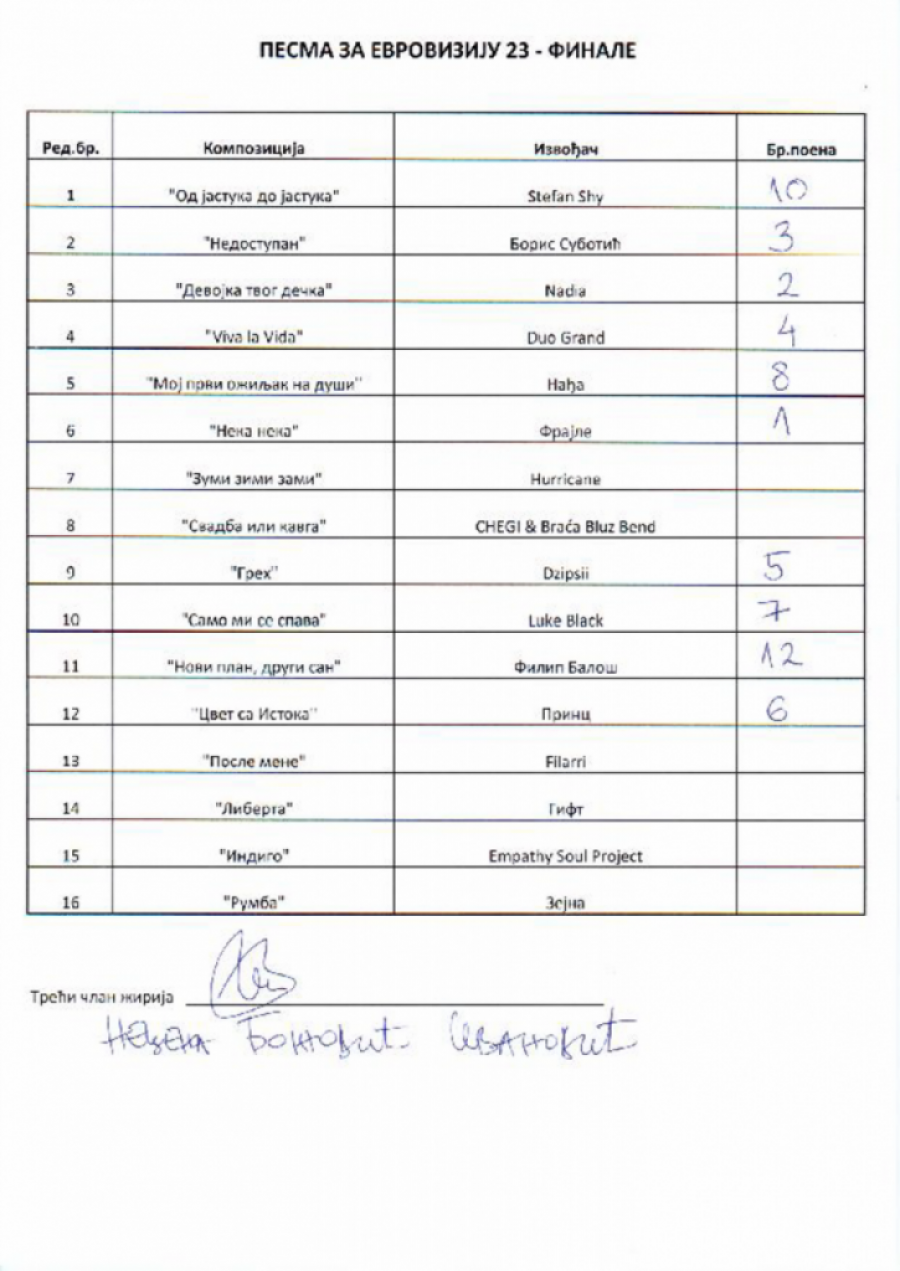 ПЕСМА ЗА ЕВРОВИЗИЈУ 23 - ФИНАЛЕ
Ред.бр. Композиција Извођач Бр.поена
1 "Од јастука до јастука" Stefan Shy 10
2 "Недоступан" Борис Суботић 3
3 "Девојка твог дечка" Nadia 2
4 "Viva la Vida" Duo Grand 4
5 "Мој први ожиљак на души" Нађа 8
6 "Нека нека" Фрајле 1
7 "Зуми зими зами" Hurricane
8 "Свадба или кавга" CHEGI & Braća Bluz Bend
9 "Грех" Dzipsii 5
10 "Само ми се спава" Luke Black 7
11 "Нови план, други сан" Филип Балош 12
12 "Цвет са Истока" Принц 6
13 "После мене" Filarri
14 "Либерта" Гифт
15 "Индиго" Empathy Soul Project
16 "Румба" Зејна
Трећи члан жирија
Ивановић